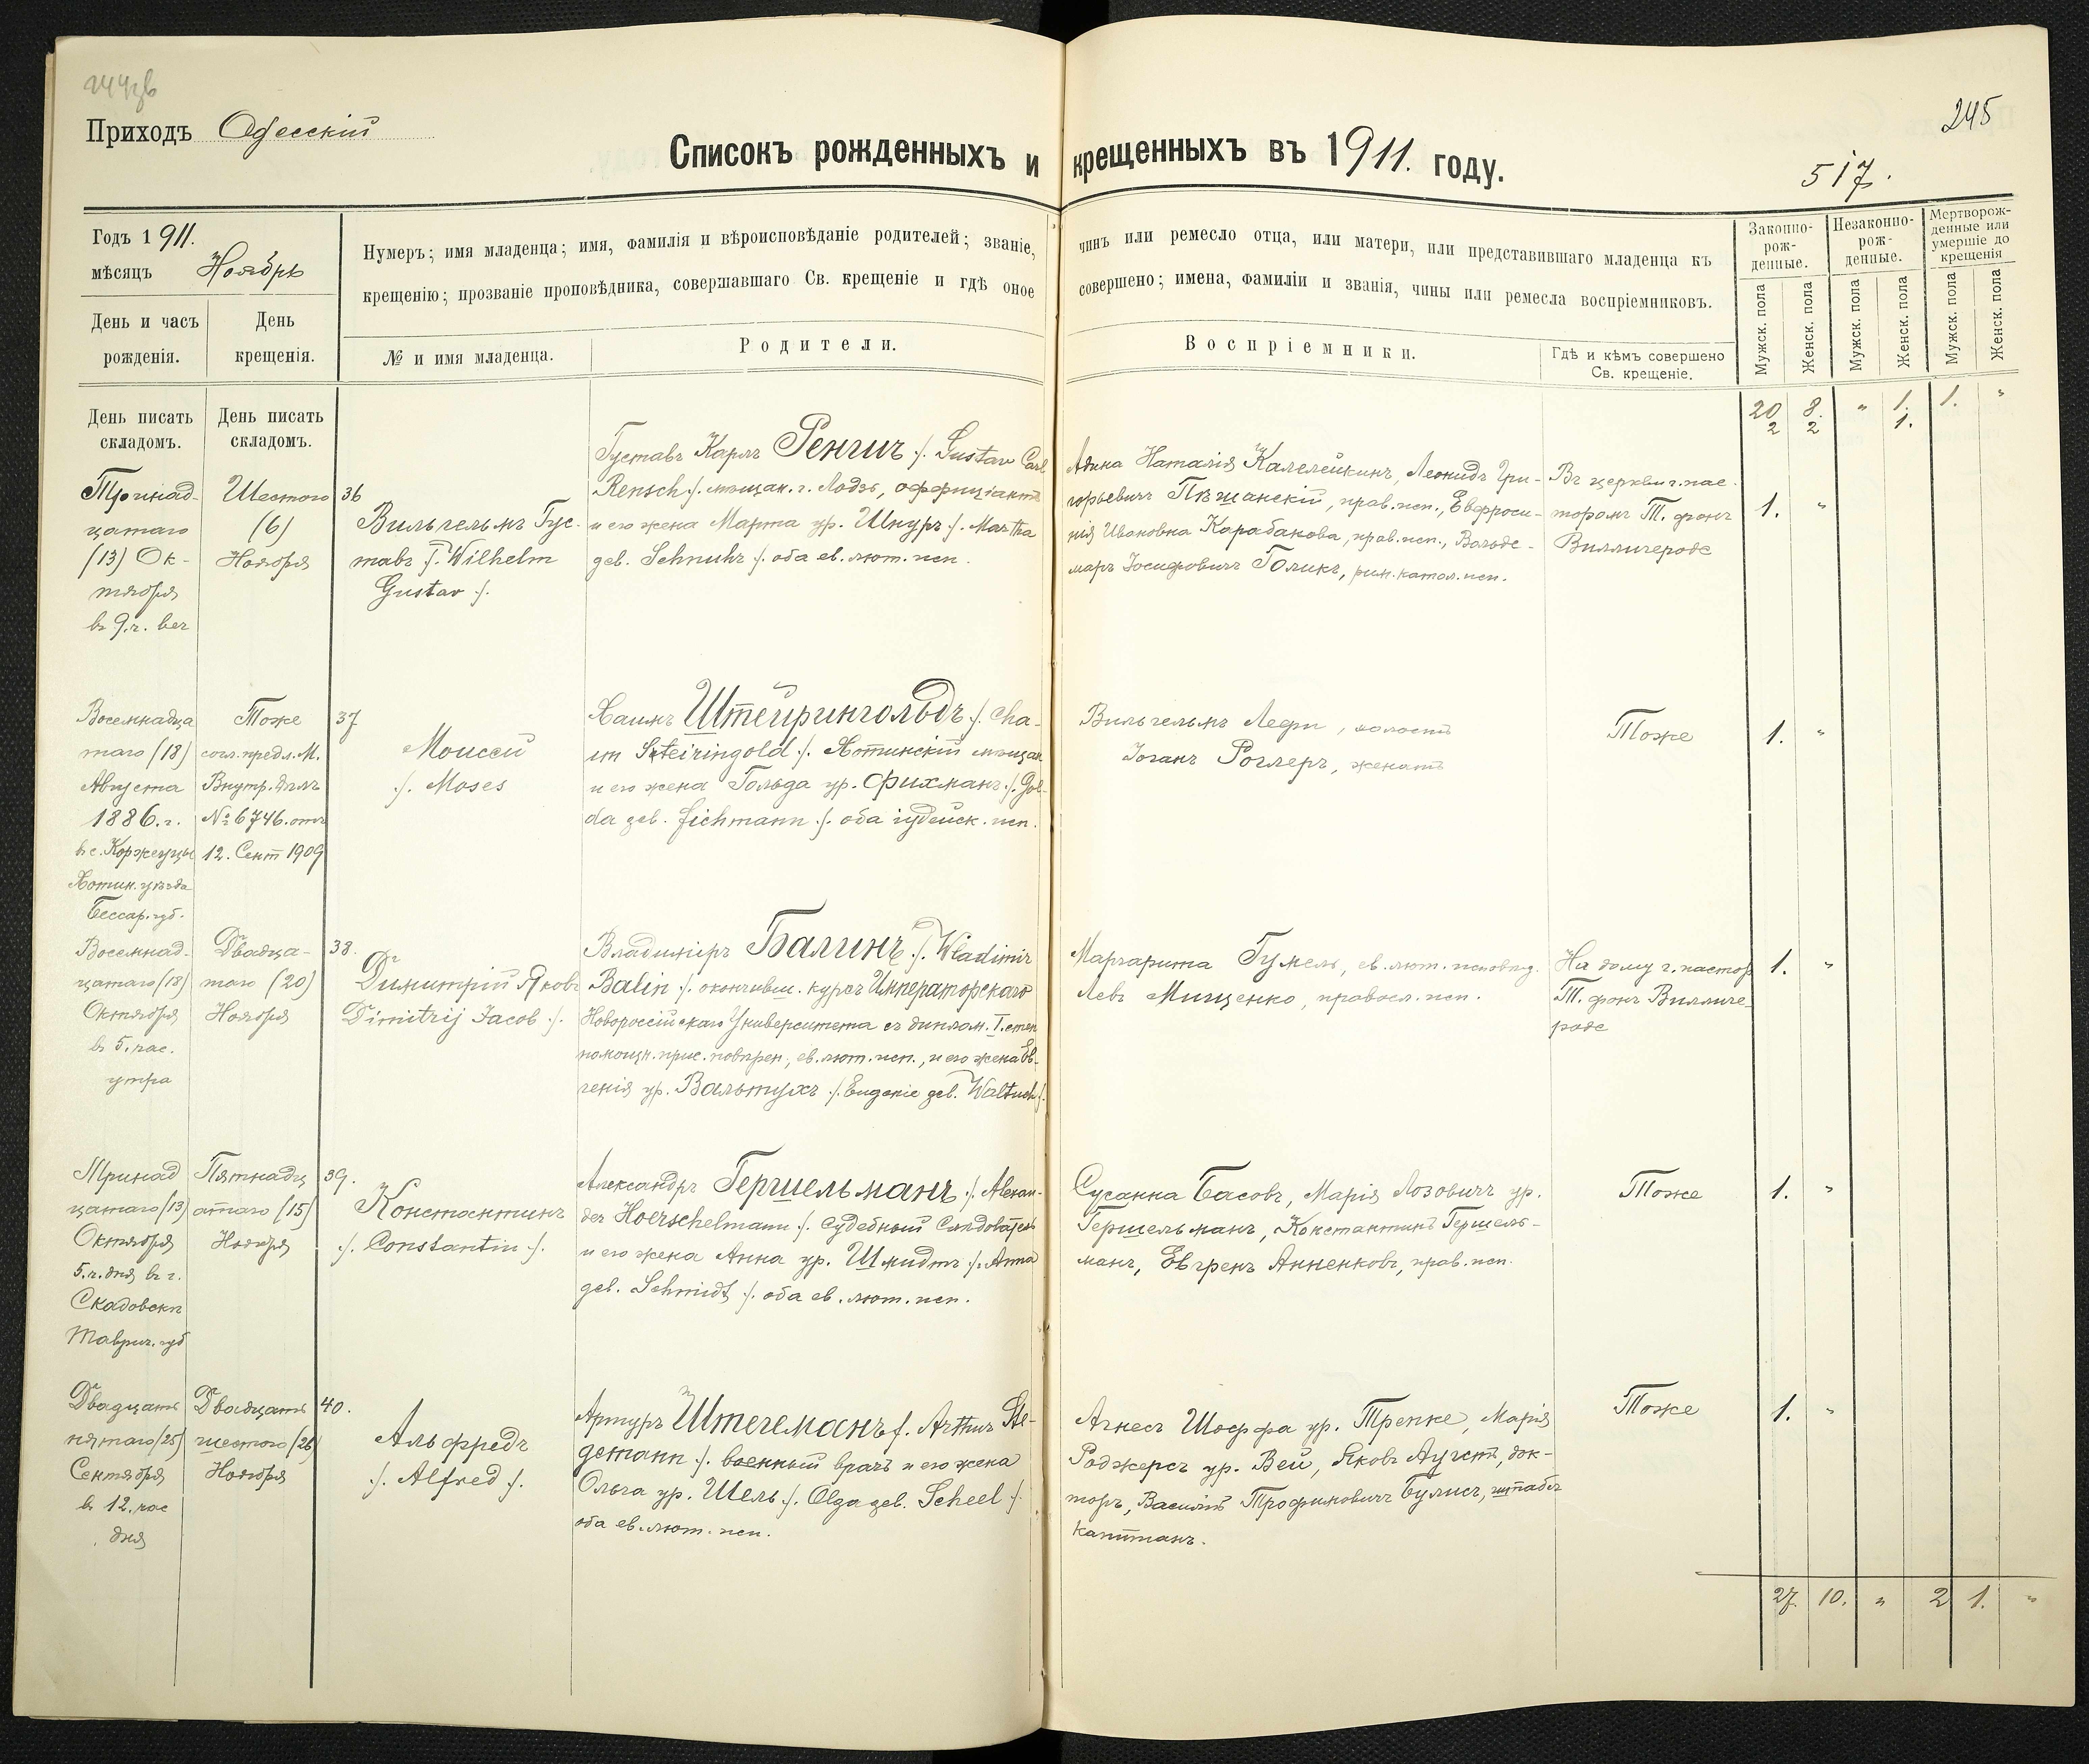 245
Приходъ Одесскій
Списокъ рожденныхъ и крещенныхъ въ 1911. году.
517.
Годъ 1911.
мѣсяцъ Ноябрь
День и часъ
рожденія.
День
крещенія.
Нумеръ; имя младенца; имя, фамилія и вѣроисповѣданіе родителей; званіе, чинъ или ремесло отца, или матери, или представившаго младенца къ
крещенію; прозваніе проповѣдника, совершавшаго Св. крещеніе и гдѣ оное совершено; имена, фамиліи и званія, чины или ремесла воспріемниковъ.
№ и имя младенца.
Родители.
Воспріемники.
Гдѣ и кѣмъ совершено
Св. крещеніе.
Законно-
рож-
денные.
Незаконно-
рож-
денные.
Мертворож-
денные или
умершіе до
крещенія
Мужск. пола
Женск. пола
Мужск. пола
Женск. пола
Мужск. пола
Женск. пола
День писать
складомъ.
День писать
складомъ.
20 8. " 1. 1. "
2 2 1.
Тринад-
цатаго
(13) Ок-
тября
въ 9.ч. веч
Шестого
(6)
Ноября
36
Вильгельмъ Гус-
тавъ /. Wilhelm
Gustav /.
Густавъ Карлъ Ренгигъ /. Gustav Carl
Rensch /. мѣщан. г. Лодзь, оффиціантъ
и его жена Марта ур. Шнуръ /. Martha
geb. Schnuhr /. оба ев. лют. исп.
Адина Наталія Калелейкинъ, Леонидъ Гри-
горьевичъ Пѣщанскій, прав. исп., Евфроси-
нія Ивановна Карабанова, прав. исп., Вольде-
маръ Іосифовичъ Голикъ, рим. катол. исп.
Въ церкви г. пас-
торомъ Т. фонъ
Виллигероде
1. "
Восемнадца
таго (18)
Августа
1886. г.
въ с. Коржеуцы
Хотин. уѣзда
Бессар. губ.
Тоже
согл. предл. М.
Внутр. Дѣлъ
№ 6746. отъ
12. Сент 1909
37
Моисей
/. Moses
Хаимъ Штейрингольдъ /. Cha-
im Steiringold /. Хотинскій мѣщан
и его жена Гольда ур. Фихманъ /. Gol-
da geb. Fichmann /. оба іудейск. исп.
Вильгельмъ Леди, холостъ
Іоганъ Роглеръ, женатъ
Тоже
1. "
Восемнад-
цатаго (18)
Октября
въ 5. час.
утра
Двадца-
таго (20)
Ноября
38.
Димитрій Яковъ
Dimitrij Jacob /.
Владиміръ Балинъ /. Wladimir
Balin /. окончивш. курсъ Императорскаго
Новороссійскаго Университета съ диплом. I. степ
помощн. прис. повѣрен., ев. лют. исп., и его жена Ев-
генія ур. Вальтухъ /. Eugenie geb. Waltuch /.
Маргарита Гумель, ев. лют. исповѣд.
Левъ Мищенко, правосл. исп.
На дому г. пастор
Т. фонъ Виллиге-
роде
1. "
Тринад
цатаго (13)
Октября
5. ч. дня въ г.
Скадовскѣ
Таврич. губ
Пятнадц
атаго (15)
Ноября
39.
Константинъ
/. Constantin /.
Александръ Гершельманъ /. Alexan-
der Hoerschelmann /. Судебный Слѣдователь
и его жена Анна ур. Шмидтъ /. Anna
geb. Schmidt /. оба ев. лют. исп.
Сусанна Басовъ, Марія Лозовичъ ур.
Гершельманъ, Константинъ Гершель-
манъ, Евгренъ Анненковъ, прав. исп.
Тоже
1. "
Двадцать
пятаго (25)
Сентября
въ 12. час
дня
Двадцать
шестого (26)
Ноября
40.
Альфредъ
/. Alfred /.
Артуръ Штегеманъ /. Arthur Ste-
gemann /. военный врачъ и его жена
Ольга ур. Шель /. Olga geb. Scheel /.
оба ев. лют. исп.
Агнесъ Шоффа ур. Трепке, Марія
Роджерсъ ур. Вей, Яковъ Аугстъ, док-
торъ, Василій Трофимовичъ Булисъ, штабсъ
капитанъ.
Тоже
1. "
27. 10. " 2 1. "